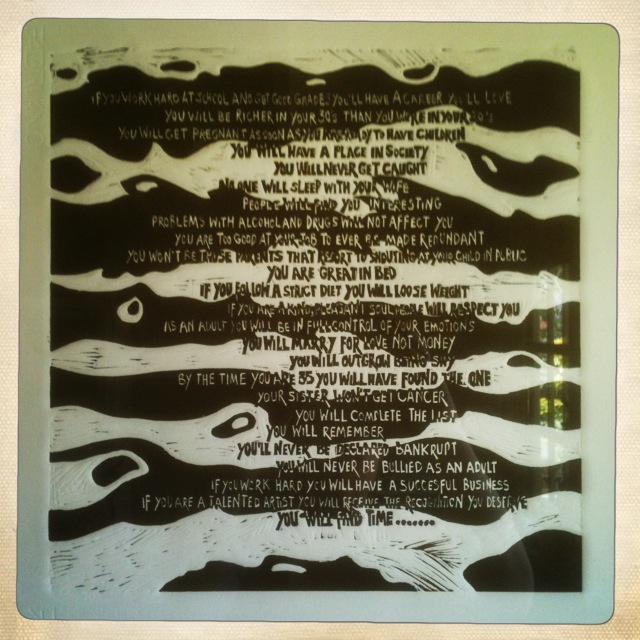 IF YOU WORK HARD AT SCHOOL AND GET GOOD GRADES YOU'LL HAVE A CAREER YOU'LL LOVE
YOU WILL BE RICHER IN YOUR 30'S THAN YOU WERE IN YOUR 20'S
YOU WILL GET PREGNANT AS SOON AS YOU ARE READY TO HAVE CHILDREN
YOU WILL HAVE A PLACE IN SOCIETY
YOU WILL NEVER GET CAUGHT
NO ONE WILL SLEEP WITH YOUR WIFE
PEOPLE WILL FIND YOU INTERESTING
PROBLEMS WITH ALCOHOL AND DRUGS WILL NOT AFFECT YOU
YOU ARE TOO GOOD AT YOUR JOB TO EVER BE MADE REDUNDANT
YOU WON'T BE THOSE PARENTS THAT RESORT TO SHOUTING AT YOUR CHILD IN PUBLIC
YOU ARE GREAT IN BED
IF YOU FOLLOW A STRICT DIET YOU WILL LOOSE WEIGHT
IF YOU ARE A KIND PLEASANT SOUL PEOPLE WILL RESPECT YOU
AS AN ADULT YOU WILL BE IN FULL CONTROL OF YOUR EMOTIONS
YOU WILL MARRY FOR LOVE NOT MONEY
YOU WILL OUTGROW BEING SHY
BY THE TIME YOU ARE 35 YOU WILL HAVE FOUND THE ONE
YOUR SISTER WON'T GET CANCER
YOU WILL COMPLETE THE LIST
YOU WILL REMEMBER
YOU'LL NEVER BE DECLARED BANKRUPT
YOU WILL NEVER BE BULLIED AS AN ADULT
IF YOU WORK HARD YOU WILL HAVE A SUCCESFUL BUSINESS
IF YOU ARE A TALENTED ARTIST YOU WILL RECEIVE THE RECOGNITION YOU DESERVE
YOU WILL FIND TIME.......